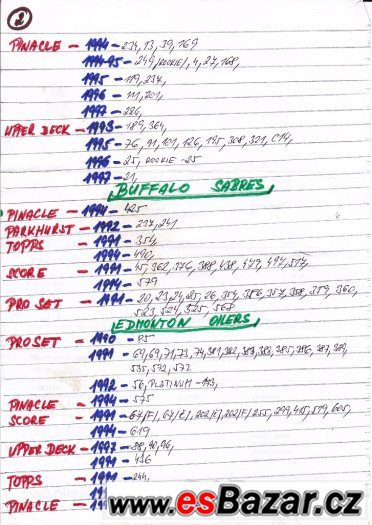 2
PINACLE - 1994 - 234, 13, 39, 169
1994-95 - 249 /ROOKIE/, 4, 27, 168,
1995 - 119, 237,
1996 - 111, 201,
1997 - 226,
UPPER DECK - 1993 - 189, 364,
1995 - 76, 91, 101, 126, 195, 308, 321, C14,
1996 - 25, ROOKIE - 25
1997 - 21,
BUFFALO SABRES
PINACLE - 1994 - 425
PARKHURST - 1992 - 237, 241
TOPPS - 1991 - 354,
1994 - 490,
SCORE - 1991 - 45, 362, 376, 388, 438, 479, 497, 514,
1994 - 579
PRO SET - 1991 - 20, 23, 24, 25, 26, 354, 356, 357, 358, 359, 360,
523, 524, 525, 568
EDMONTON OILERS
PRO SET - 1990 - 85,
1991 - 69, 71, 73, 74, 381, 382, 383, 385, 386, 387,
535, 572, 572
1992 - 56, PLATINUM - 113,
PINACLE - 1994 - 575
SCORE - 1991 - 64/F/, 202/F/, 255, 299, 415, 519, 605,
1994 - 619
UPPER DECK - 1997 - 38, 40, 96,
1991 - 416
TOPPS - 1991 - 244,
PINACLE -
www.esBazar.cz